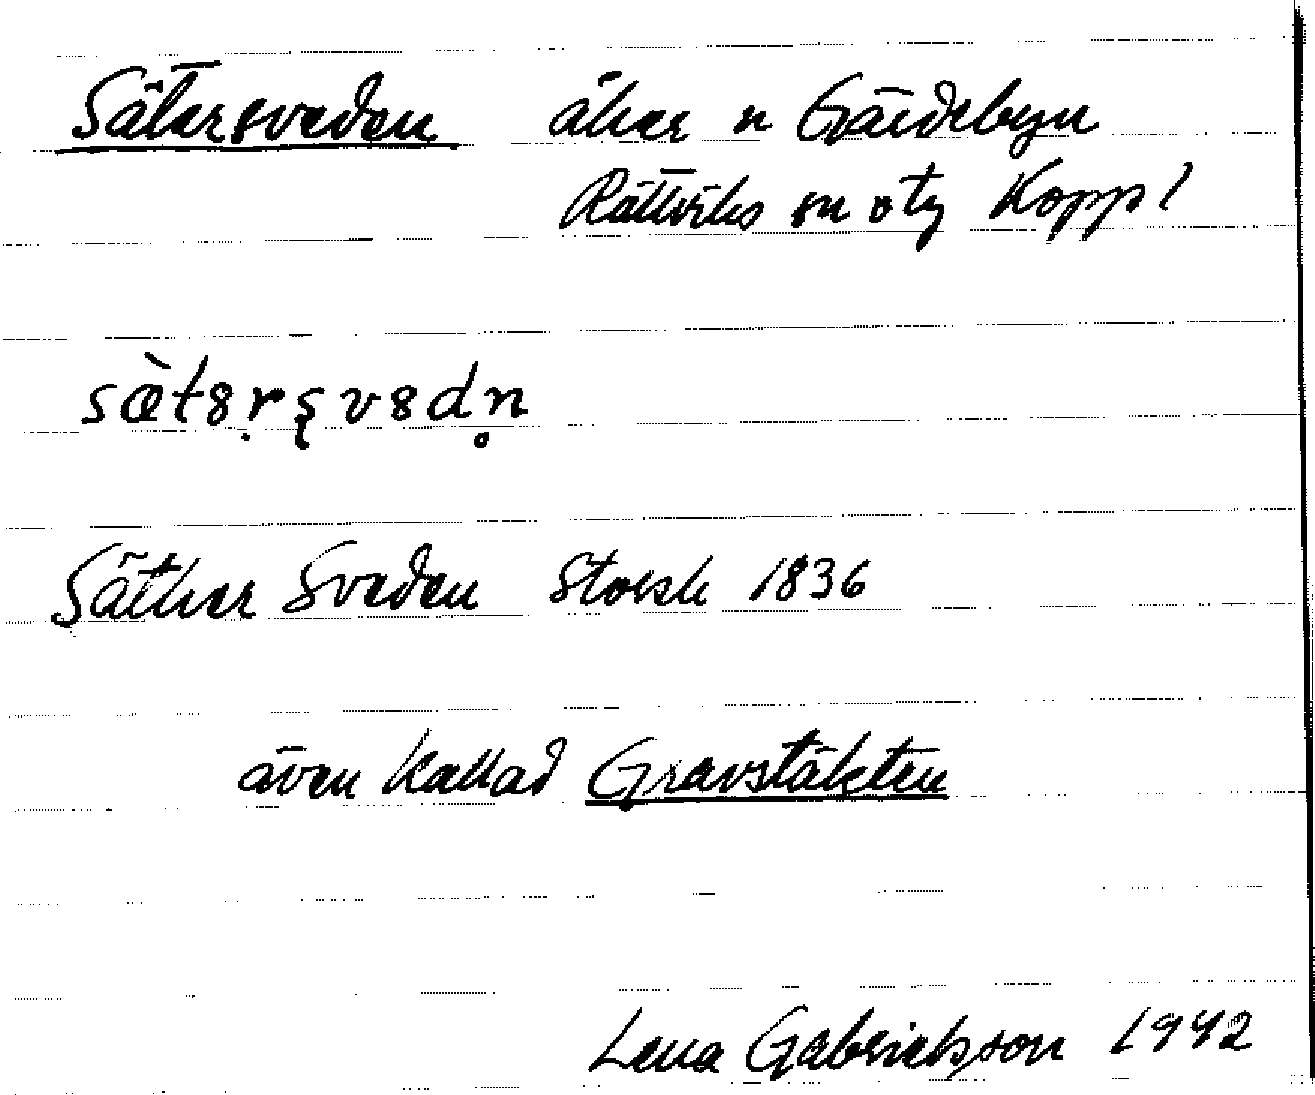 Sätersveden åker n Gärdebyn
Rättviks sn o ty Koppl
sæ̀t8ṛșv8dn̥
Säther Sveden Storsk 1836
även kallad Gravstäkten
Lena Gabrielsson 1942